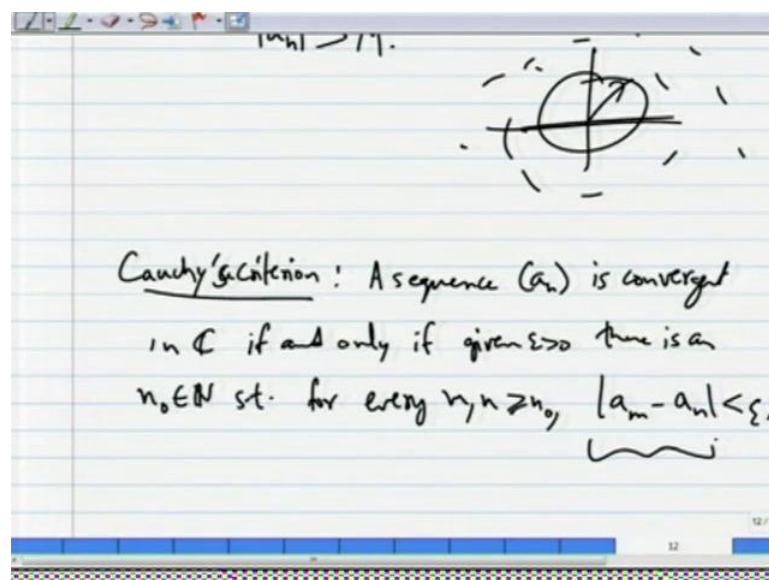 |a_n| > M.
Cauchy's Criterion : A sequence (a_n) is convergent
in ℂ if and only if given ε>0 there is an
n₀∈ℕ st. for every m,n ⩾ n₀, |a_m - a_n| < ε.
12 /
12